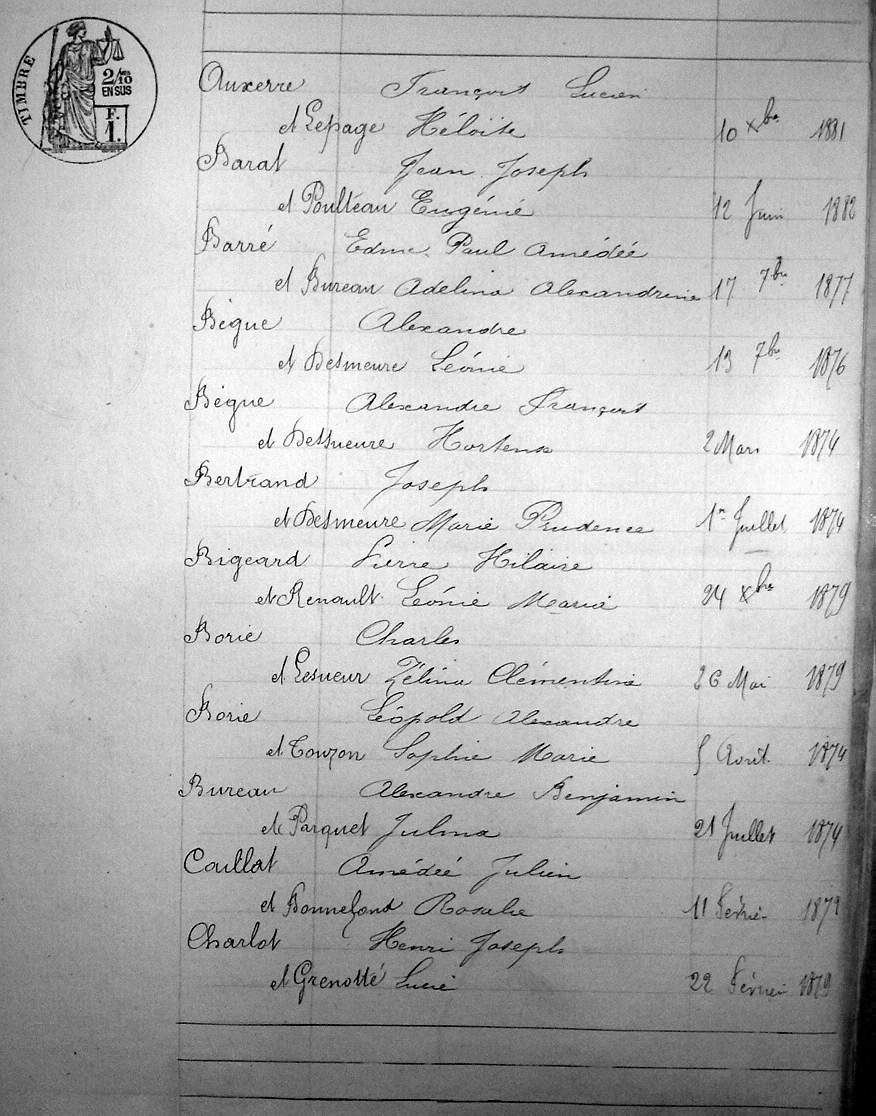 TIMBRE
2/10 EN SUS
F. 1.
Auxerre François Lucien
et Lepage Héloïse 10 Xbre 1881
Barat Jean Joseph
et Poulteau Eugénie 12 Juin 1882
Barré Edme Paul Amédée
et Bureau Adelina Alexandrine 17 7bre 1877
Bègue Alexandre
et Desmeure Léonie 13 7bre 1876
Bègue Alexandre François
et Hortense 2 Mars 1874
Bertrand Joseph
et Desmeure Marie Prudence 1er Juillet 1874
Bigeard Pierre Hilaire
et Renault Léonie Maria 24 Xbre 1879
Borie Charles
et Lesueur Zélina Clémentine 26 Mai 1879
Borie Léopold Alexandre
et Touzon Sophie Marie 5 Avril 1874
Bureau Alexandre Benjamin
et Parquet Julma 21 Juillet 1874
Caullot Amédée Julien
et Bonnefond Rosalie 11 Février 1879
Charlot Henri Joseph
et Grenotté Lucie 22 Février 1879